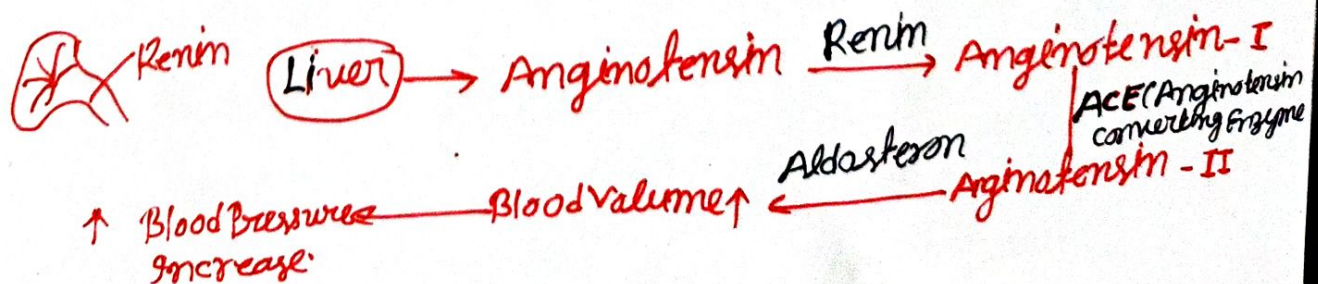 Renin Liver → Anginotensin Renin → Anginotensin-I
ACE(Anginotensin
converting Enzyme
Aldosteron
↑ Blood Pressure ← Blood Valume↑ ← Arginatensin - II
Increase.